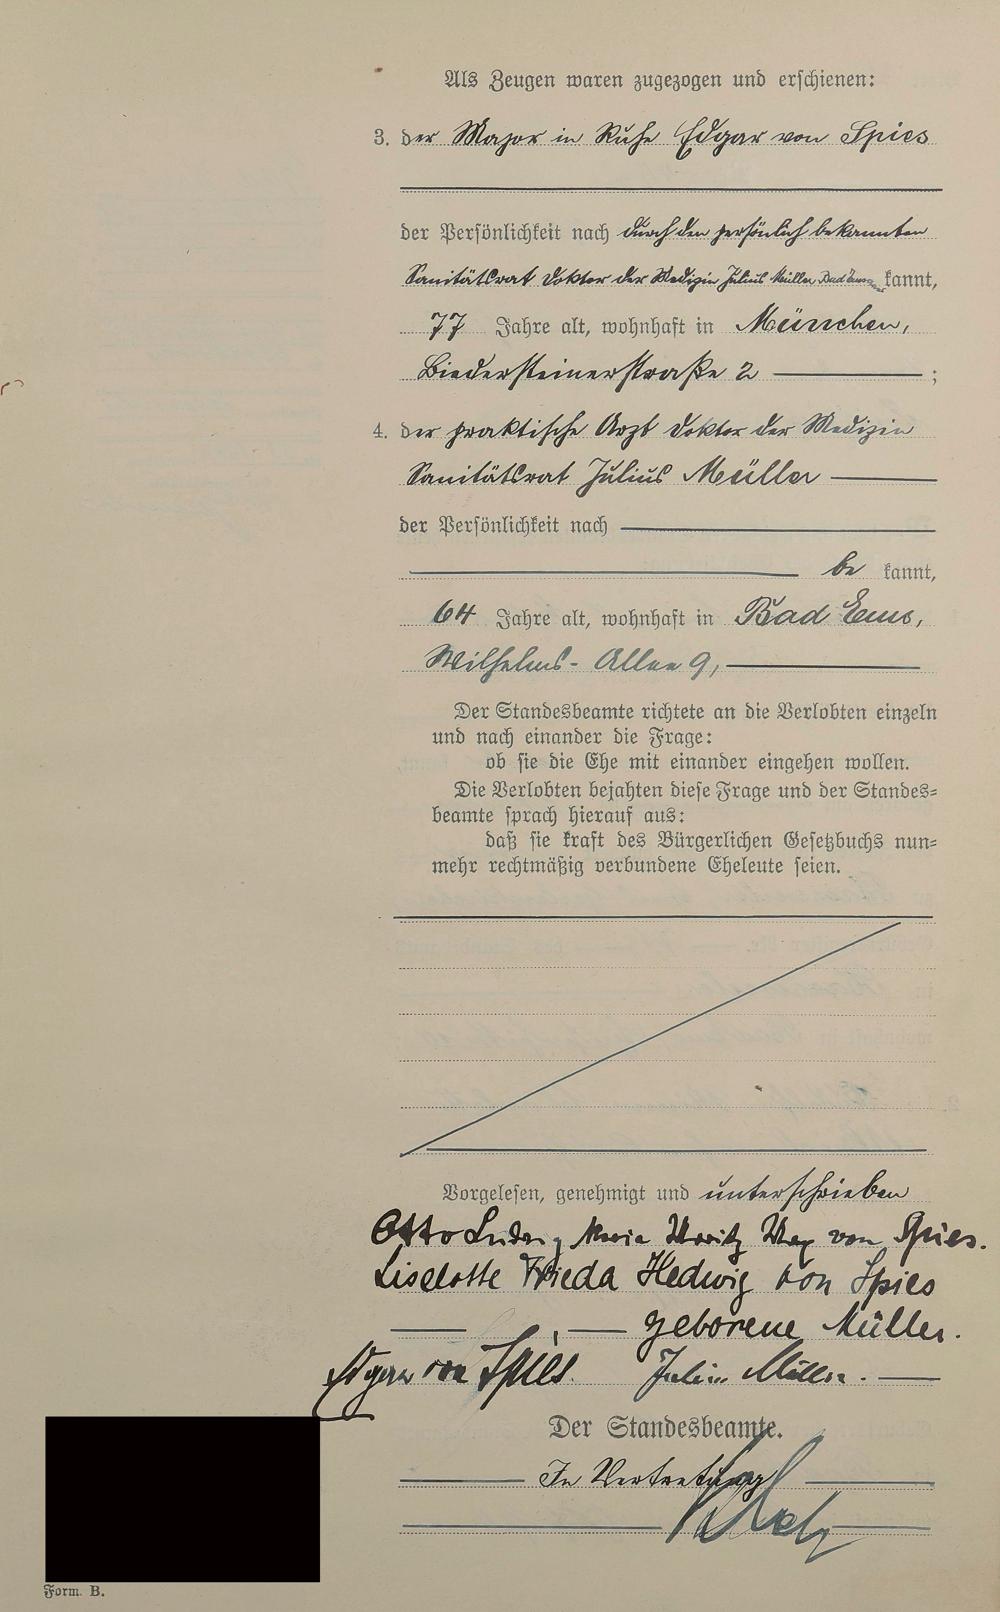 Als Zeugen waren zugezogen und erschienen:
3. der Major in Ruhe Edgar von Spies
der Persönlichkeit nach durch den persönlich bekannten
Sanitätsrat Doktor der Medizin Julius Müller Bad Ems kannt,
77 Jahre alt, wohnhaft in München,
Biedersteinerstraße 2 ;
4. der praktische Arzt Doktor der Medizin
Sanitätsrat Julius Müller
der Persönlichkeit nach
be kannt,
64 Jahre alt, wohnhaft in Bad Ems,
Wilhelms-Allee 9,
Der Standesbeamte richtete an die Verlobten einzeln
und nach einander die Frage:
ob sie die Ehe mit einander eingehen wollen.
Die Verlobten bejahten diese Frage und der Standes=
beamte sprach hierauf aus:
daß sie kraft des Bürgerlichen Gesetzbuchs nun=
mehr rechtmäßig verbundene Eheleute seien.
Vorgelesen, genehmigt und unterschrieben
Otto Ludwig Maria Moritz Max von Spies.
Liselotte Frieda Hedwig von Spies
geborene Müller.
Edgar von Spies. Julius Müller.
Der Standesbeamte.
In Vertretung
Form. B.